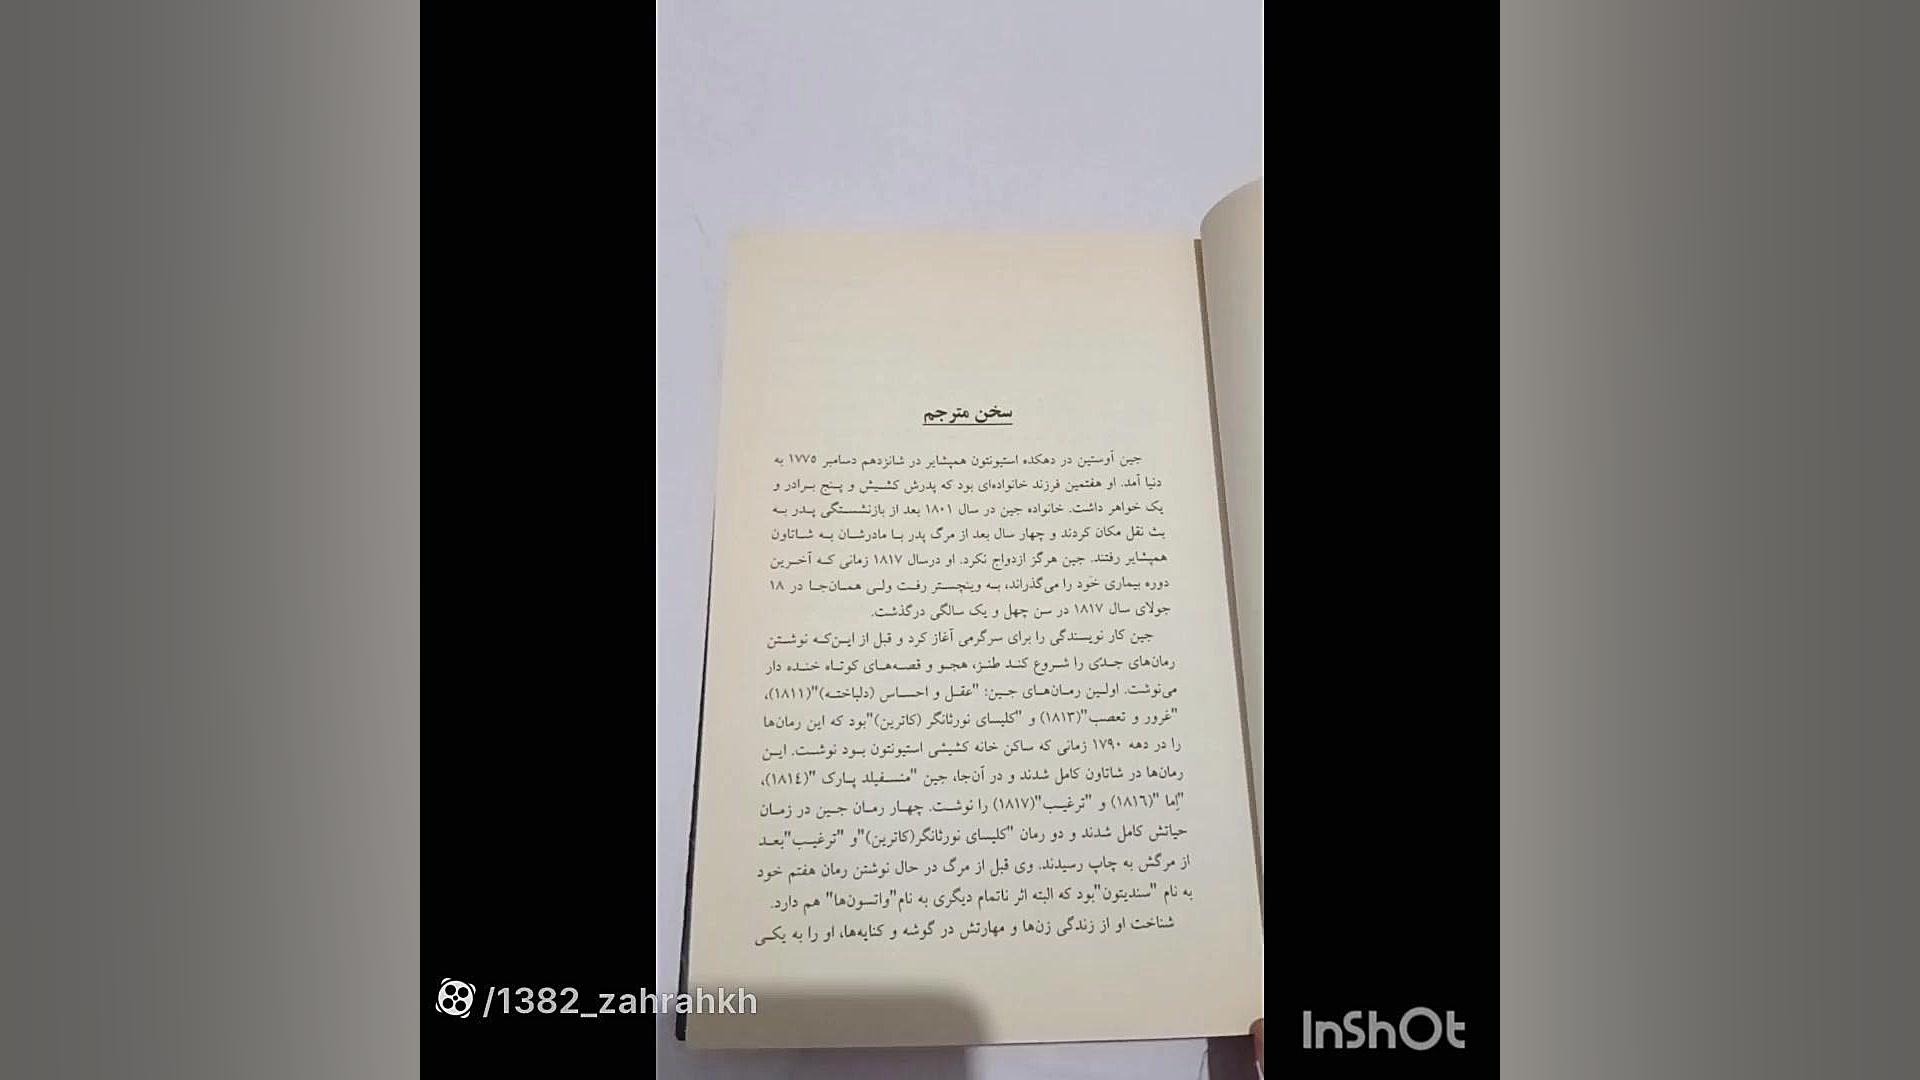 سخن مترجم
جین آوستین در دهکده استیونتون همپشایر در شانزدهم دسامبر ۱۷۷۵ به
دنیا آمد. او هفتمین فرزند خانواده‌ای بود که پدرش کشیش و پنج برادر و
یک خواهر داشت. خانواده جین در سال ۱۸۰۱ بعد از بازنشستگی پدر به
بث نقل مکان کردند و چهار سال بعد از مرگ پدر با مادرشان به شاتاون
همپشایر رفتند. جین هرگز ازدواج نکرد. او درسال ۱۸۱۷ زمانی که آخرین
دوره بیماری خود را می‌گذراند، به وینچستر رفت ولی همان‌جا در ۱۸
جولای سال ۱۸۱۷ در سن چهل و یک سالگی درگذشت.
جین کار نویسندگی را برای سرگرمی آغاز کرد و قبل از این‌که نوشتن
رمان‌های جدّی را شروع کند طنز، هجو و قصه‌های کوتاه خنده دار
می‌نوشت. اولین رمان‌های جین: "عقل و احساس (دلباخته)"(۱۸۱۱)،
"غرور و تعصب"(۱۸۱۳) و "کلیسای نورثانگر (کاترین)"بود که این رمان‌ها
را در دهه ۱۷۹۰ زمانی که ساکن خانه کشیشی استیونتون بود نوشت. این
رمان‌ها در شاتاون کامل شدند و در آن‌جا، جین "منسفیلد پارک "(۱۸۱٤)،
"اِما "(۱۸۱٦) و "ترغیب"(۱۸۱۷) را نوشت. چهار رمان جین در زمان
حیاتش کامل شدند و دو رمان "کلیسای نورثانگر(کاترین)"و "ترغیب"بعد
از مرگش به چاپ رسیدند. وی قبل از مرگ در حال نوشتن رمان هفتم خود
به نام "سندیتون"بود که البته اثر ناتمام دیگری به نام"واتسون‌ها" هم دارد.
شناخت او از زندگی زن‌ها و مهارتش در گوشه و کنایه‌ها، او را به یکی
/1382_zahrahkh
InShOt